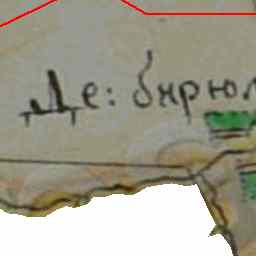 Де: бирюл